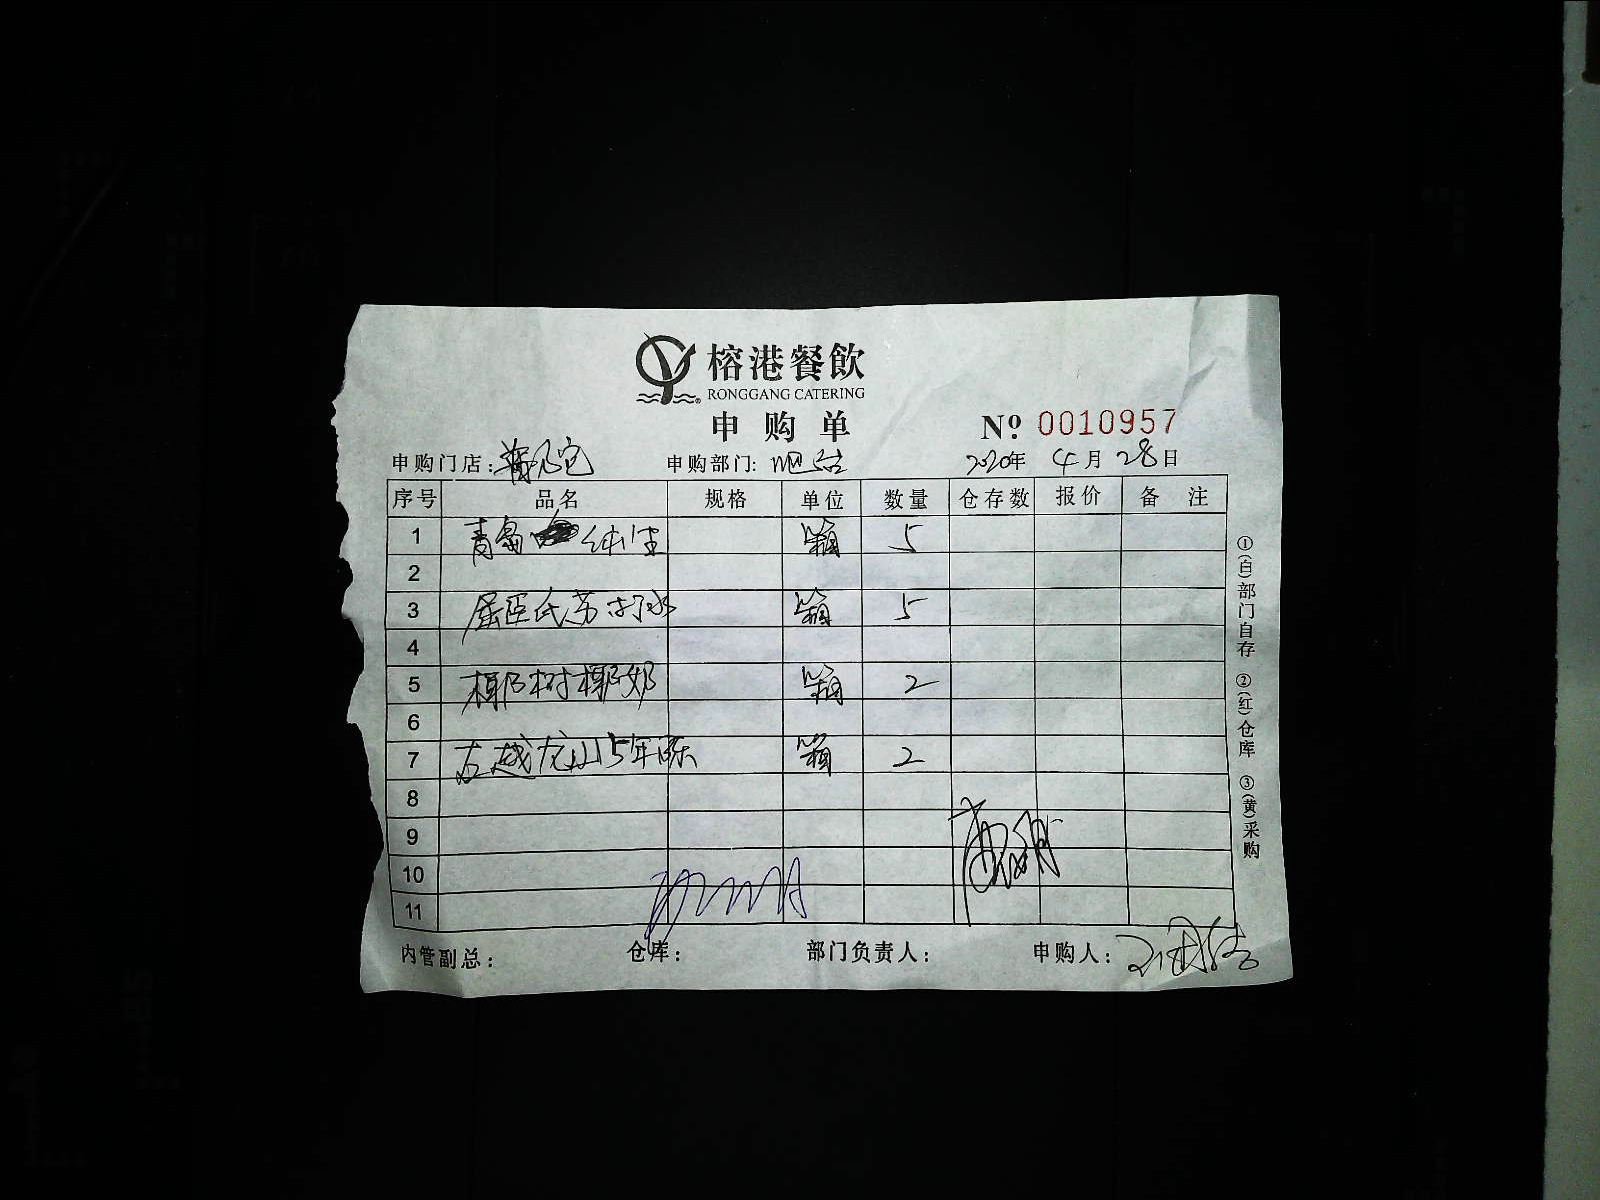 榕港餐飲
RONGGANG CATERING
申购单
Nº 0010957
申购门店: 申购部门: 吧台 2020年 4月 28日
序号 品名 规格 单位 数量 仓存数 报价 备注
1 青岛 纯生 箱 5
2
3 屈臣氏苏打水 箱 5
4
5 椰树椰奶 箱 2
6
7 古越龙山5年陈 箱 2
8
9
10
11
内管副总: 仓库: 部门负责人: 申购人:
①(白)部门自存 ②(红)仓库 ③(黄)采购